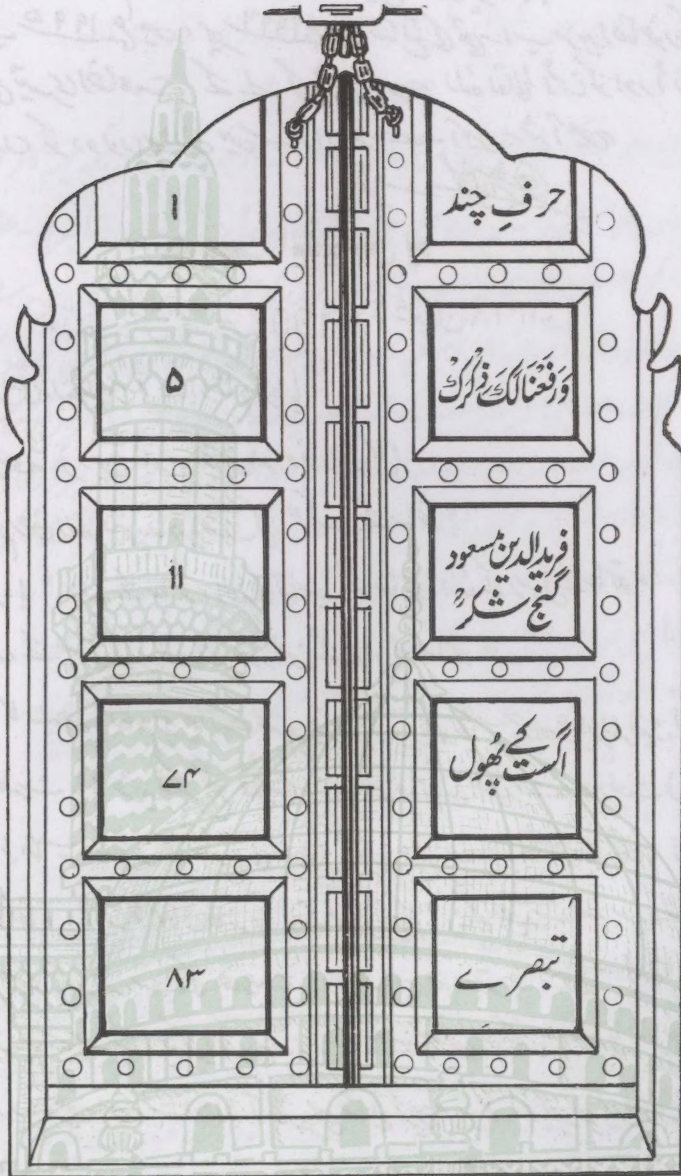 حرفِ چند
۱
وَرَفَعْنَا لَكَ ذِكْرَكَ
۵
فریدالدین مسعود
گنجِ شکرؒ
۱۱
اگست کے پھول
۷۴
تبصرے
۸۳